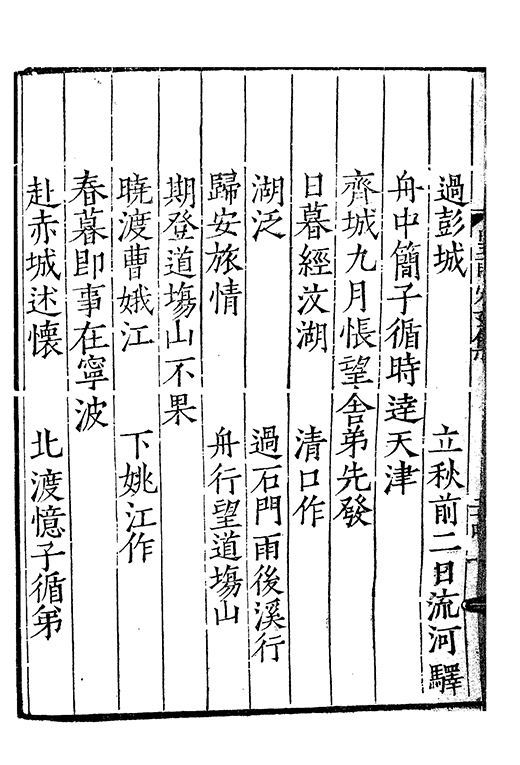 過彭城　立秋前二日流河驛
舟中簡子循時逹天津
齊城九月悵望舍弟先發
日暮經汶湖　清口作
湖泛　過石門雨後溪行
歸安旅情　舟行望道塲山
期登道塲山不果
曉渡曹娥江　下姚江作
春暮即事在寧波
赴赤城述懷　北渡憶子循弟